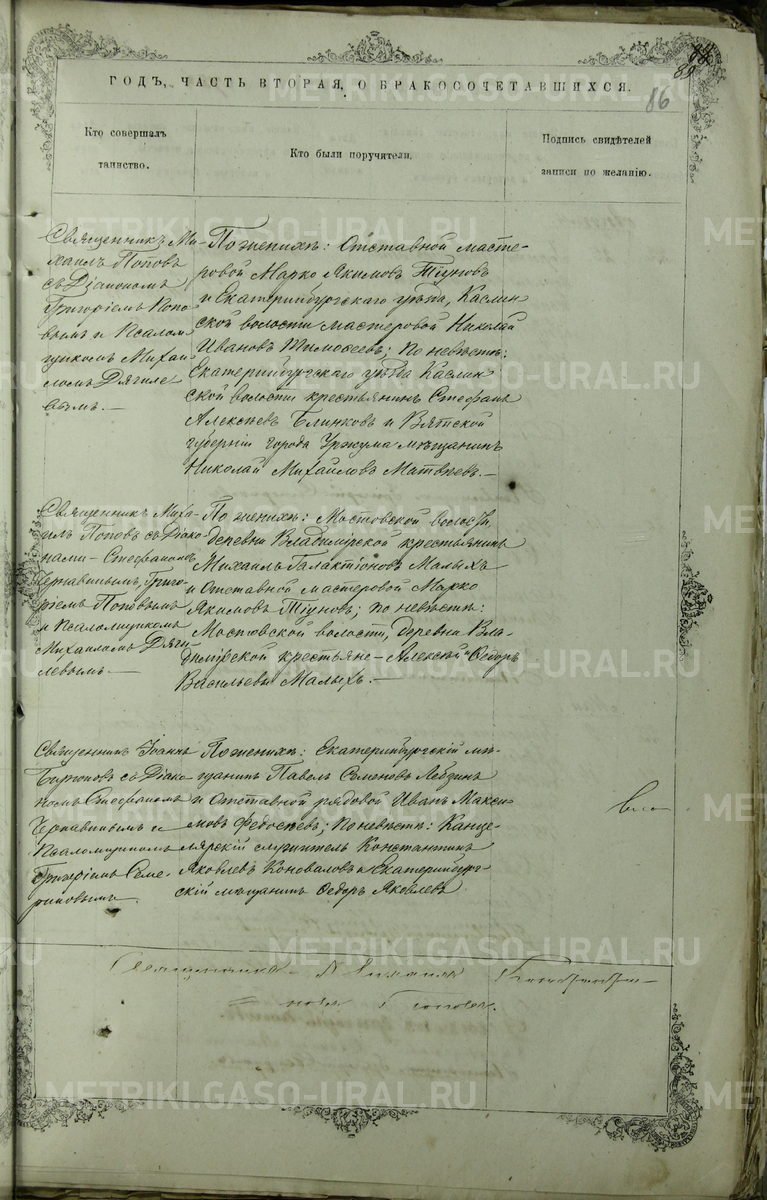 84
85
86
ГОДЪ, ЧАСТЬ ВТОРАЯ, О БРАКОСОЧЕТАВШИХСЯ.
Кто совершалъ
таинство.
Кто были поручители.
Подпись свидѣтелей
записи по желанію.
Священникъ Ми-
хаилъ Поповъ
съ Діакономъ
Григоріемъ Попо-
вымъ и Псалом-
щикомъ Михаи-
ломъ Дягиле-
вымъ.—
По женихѣ: Отставной масте-
ровой Марко Якимовъ Тіуновъ
и Екатеринбургскаго уѣзда, Каслин-
ской волости мастеровой Николай
Ивановъ Тимоѳеевъ; по невѣстѣ:
Екатеринбургскаго уѣзда Каслин
ской волости крестьянинъ Стефанъ
Алексѣевъ Блинковъ и Вятской
губерніи города Уржума мѣщанинъ
Николай Михайловъ Матвѣевъ.—
Священникъ Миха-
илъ Поповъ съ Діако-
нами— Стефаномъ
Чернавинымъ, Григо-
ріемъ Поповымъ
и Псаломщикомъ
Михаиломъ Дяги-
левымъ.—
По женихѣ: Мостовской волости,
деревни Владимірской крестьянинъ
Михаилъ Галактіоновъ Малыхъ
и Отставной мастеровой Марко
Якимовъ Тіуновъ; по невѣстѣ:
Мостовской волости, деревни Вла-
димірской крестьяне— Алексѣй и Ѳедоръ
Васильевы Малыхъ.—
Священникъ Іоаннъ
съ Діако-
номъ Стефаномъ
Чернавинымъ и
Псаломщикомъ
Григоріемъ Семе-
риковымъ
По женихѣ: Екатеринбургскій мѣ-
щанинъ Павелъ Семеновъ Лебзинъ
и Отставной рядовой Иванъ Макси-
мовъ Федосѣевъ; По невѣстѣ: Канце-
лярскій служитель Константинъ
Яковлевъ Коноваловъ и Екатеринбург-
скій мѣщанинъ Ѳедоръ Яковлевъ
Священникъ Михаилъ
Поповъ.
METRIKI.GASO-URAL.RU